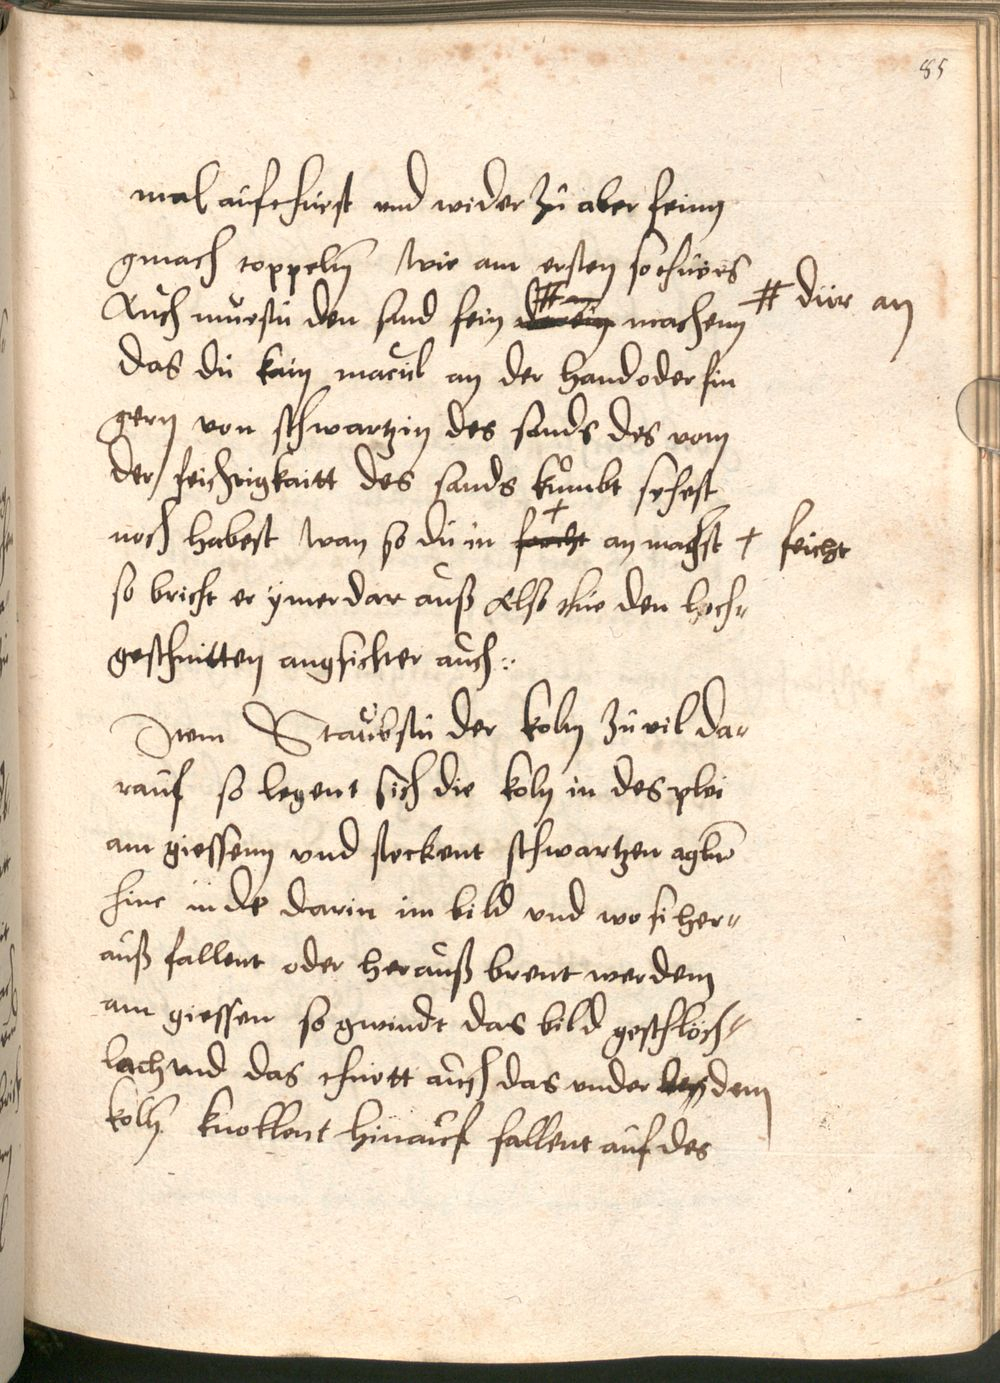 85
mal aufthuest und wider zu aber feinn
gmach toppeln wie am ersten so thuers
Auch muestu den sand fein machenn # dür an
das du kain macul an der hand oder fin
gern von schwartzin des sands des vom
der feichtigkaitt des sands kůmbt sehest
noch habest wan so du in feicht an machst + feicht
so bricht er ymerdar auß Also thue den hoch=
geschnitten angsichter auch :.
Item Staubstu der koln zu vil da=
rauf so legent sich die koln in des plei
am giessenn und steckent schwartzen
hinc darin im bild und wo si her=
auß fallent oder herauß brent werdenn
am giessen so gwindt das bild geschloch=
lach und das thuett auch das under den
koln knollent hinauf fallent auf des